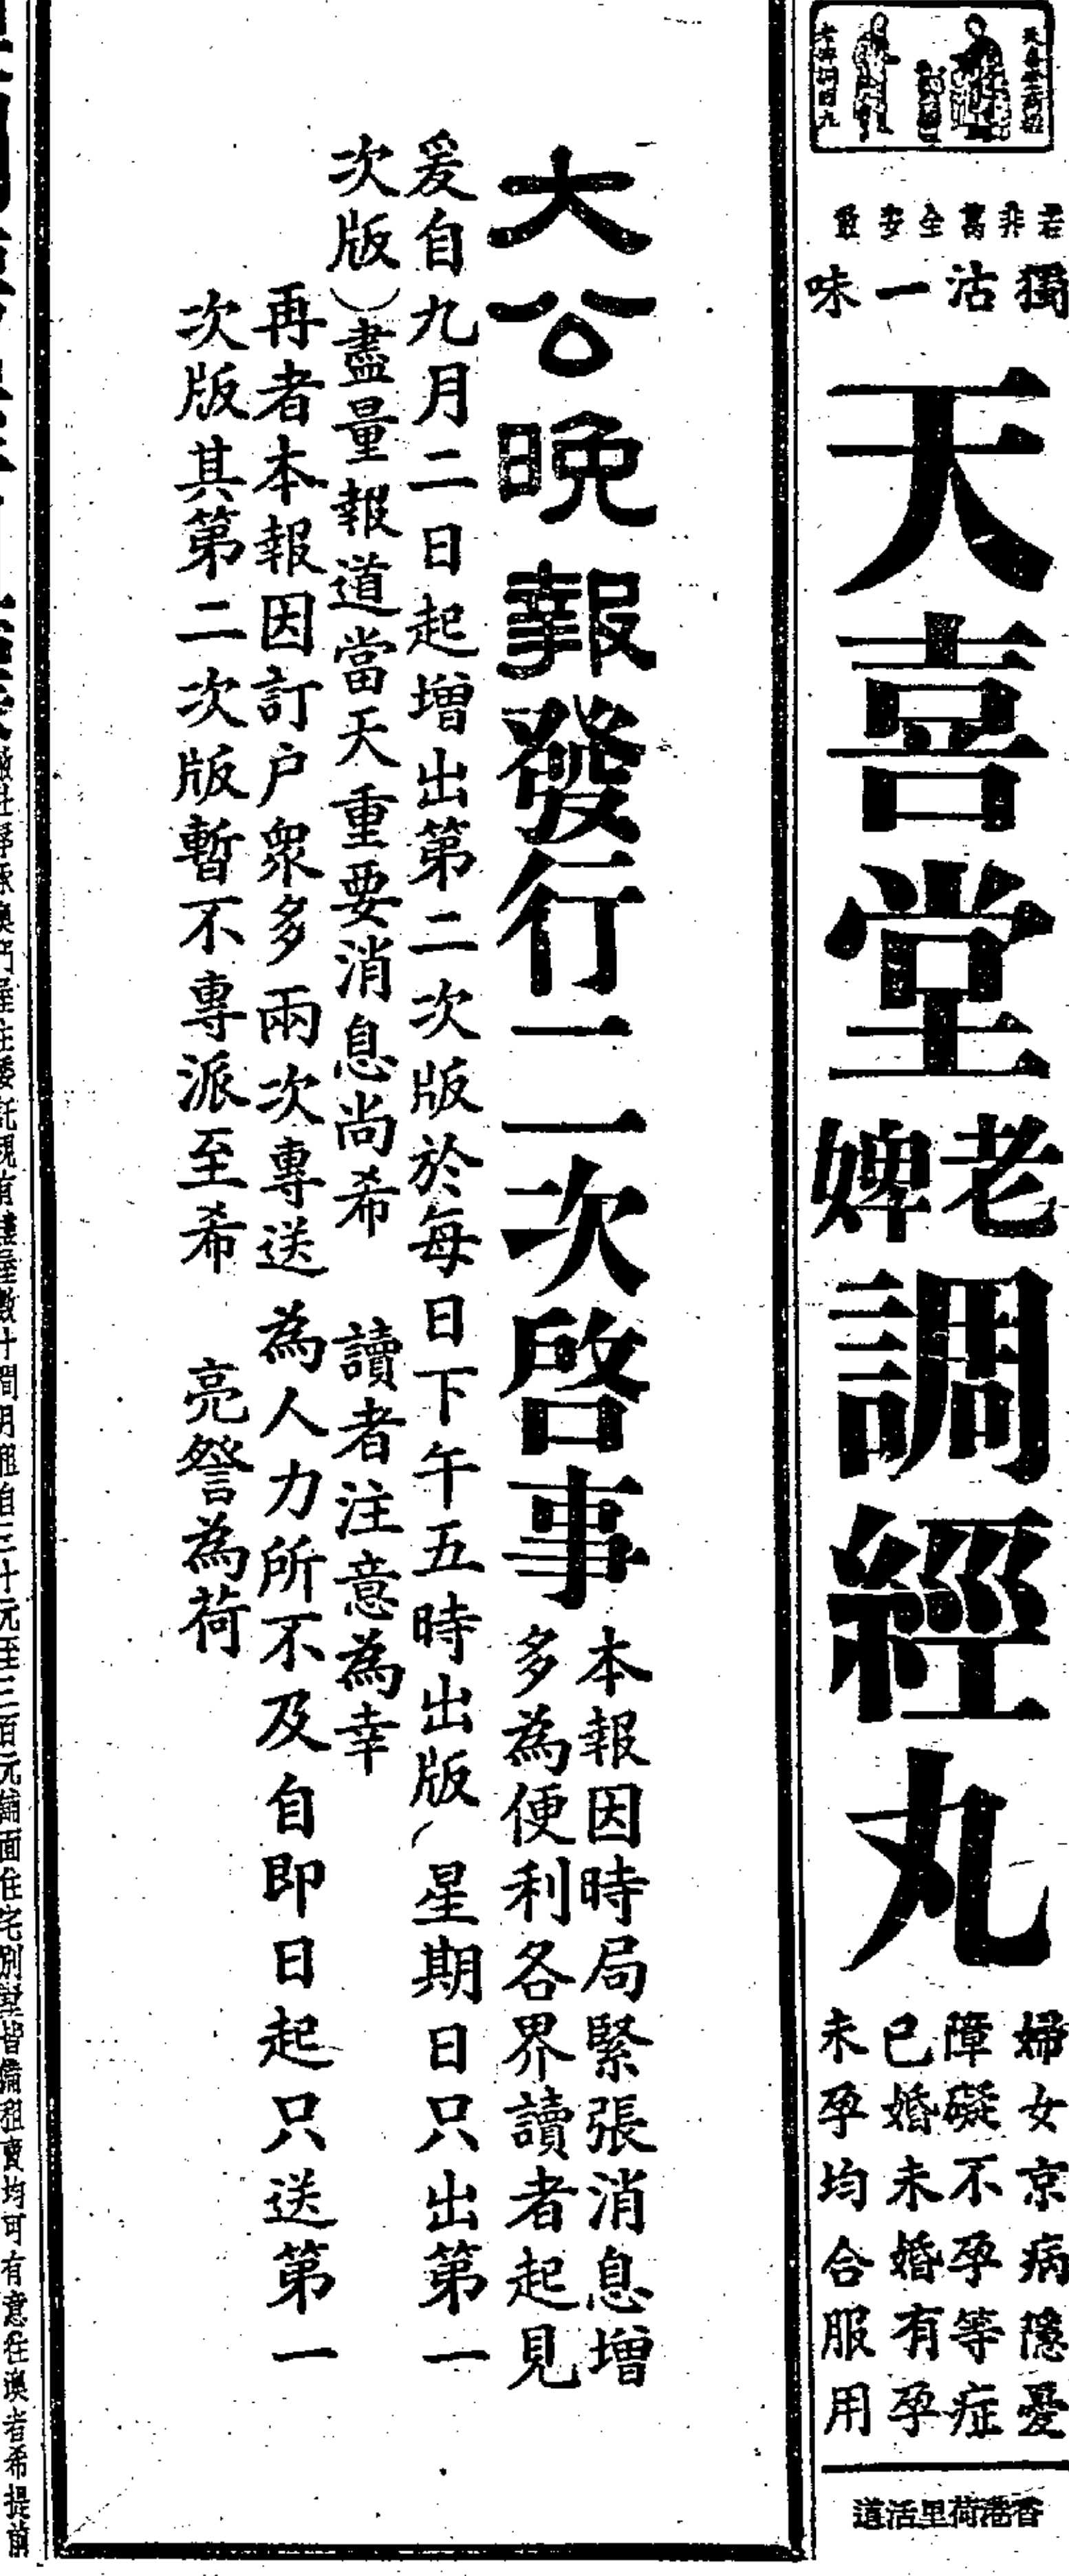 老婢調經丸
若非萬全安敢
獨沽一味
天喜堂
老婢
調經丸
婦女京病隱憂
障礙不孕等症
已婚未婚有孕
未孕均合服用
香港荷里活道
大公晚報發行二次啓事
本報因時局緊張消息增
多為便利各界讀者起見
爰自九月二日起增出第二次版於每日下午五時出版(星期日只出第一
次版)盡量報道當天重要消息尚希 讀者注意為幸
再者本報因訂户衆多兩次專送為人力所不及自即日起只送第一
次版其第二次版暫不專派至希 亮詧為荷
澳門屋住委託現有樓屋數十間月租自三十元至三百元舖面住宅別墅皆備租賣均可有意在澳者希提前